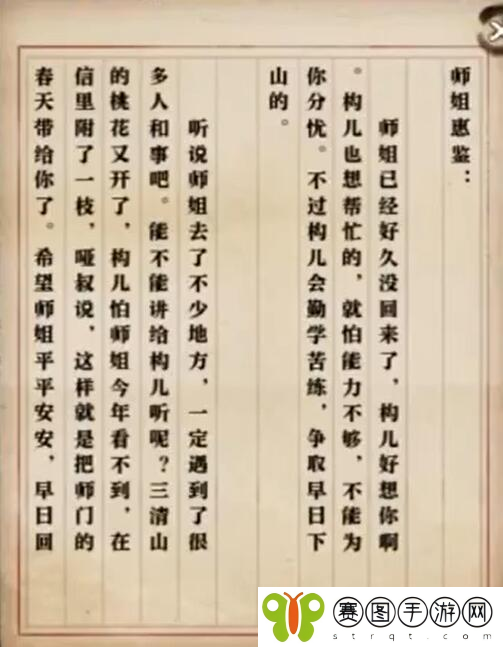 师姐惠鉴：
师姐已经好久没回来了，构儿好想你啊
。构儿也想帮忙的，就怕能力不够，不能为
你分忧。不过构儿会勤学苦练，争取早日下
山的。
听说师姐去了不少地方，一定遇到了很
多人和事吧。能不能讲给构儿听呢？三清山
的桃花又开了，构儿怕师姐今年看不到，在
信里附了一枝，哑叔说，这样就是把师门的
春天带给你了。希望师姐平平安安，早日回
赛图手游网
strqt.com